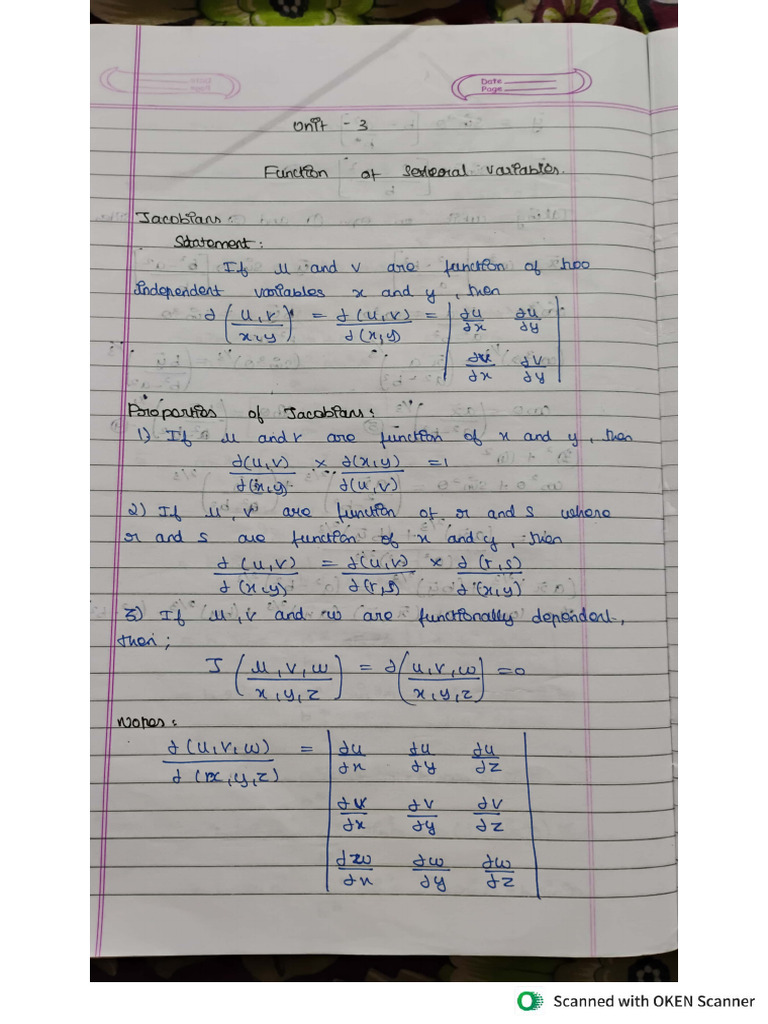 Date
Page
Unit - 3
Function of several variables.
Jacobians:
Statement:
If u and v are function of two
independent variables x and y, then
∂(u,v / x,y) = ∂(u,v)/∂(x,y) = | ∂u/∂x ∂u/∂y
∂v/∂x ∂v/∂y |
Properties of Jacobians:
1) If u and v are function of x and y, then
∂(u,v)/∂(x,y) × ∂(x,y)/∂(u,v) = 1
2) If u, v are function of r and s where
r and s are function of x and y, then
∂(u,v)/∂(x,y) = ∂(u,v)/∂(r,s) × ∂(r,s)/∂(x,y)
3) If u,v and w are functionally dependent,
then;
J(u,v,w / x,y,z) = ∂(u,v,w / x,y,z) = 0
Notes:
∂(u,v,w)/∂(x,y,z) = | ∂u/∂x ∂u/∂y ∂u/∂z
∂v/∂x ∂v/∂y ∂v/∂z
∂w/∂x ∂w/∂y ∂w/∂z |
Scanned with OKEN Scanner